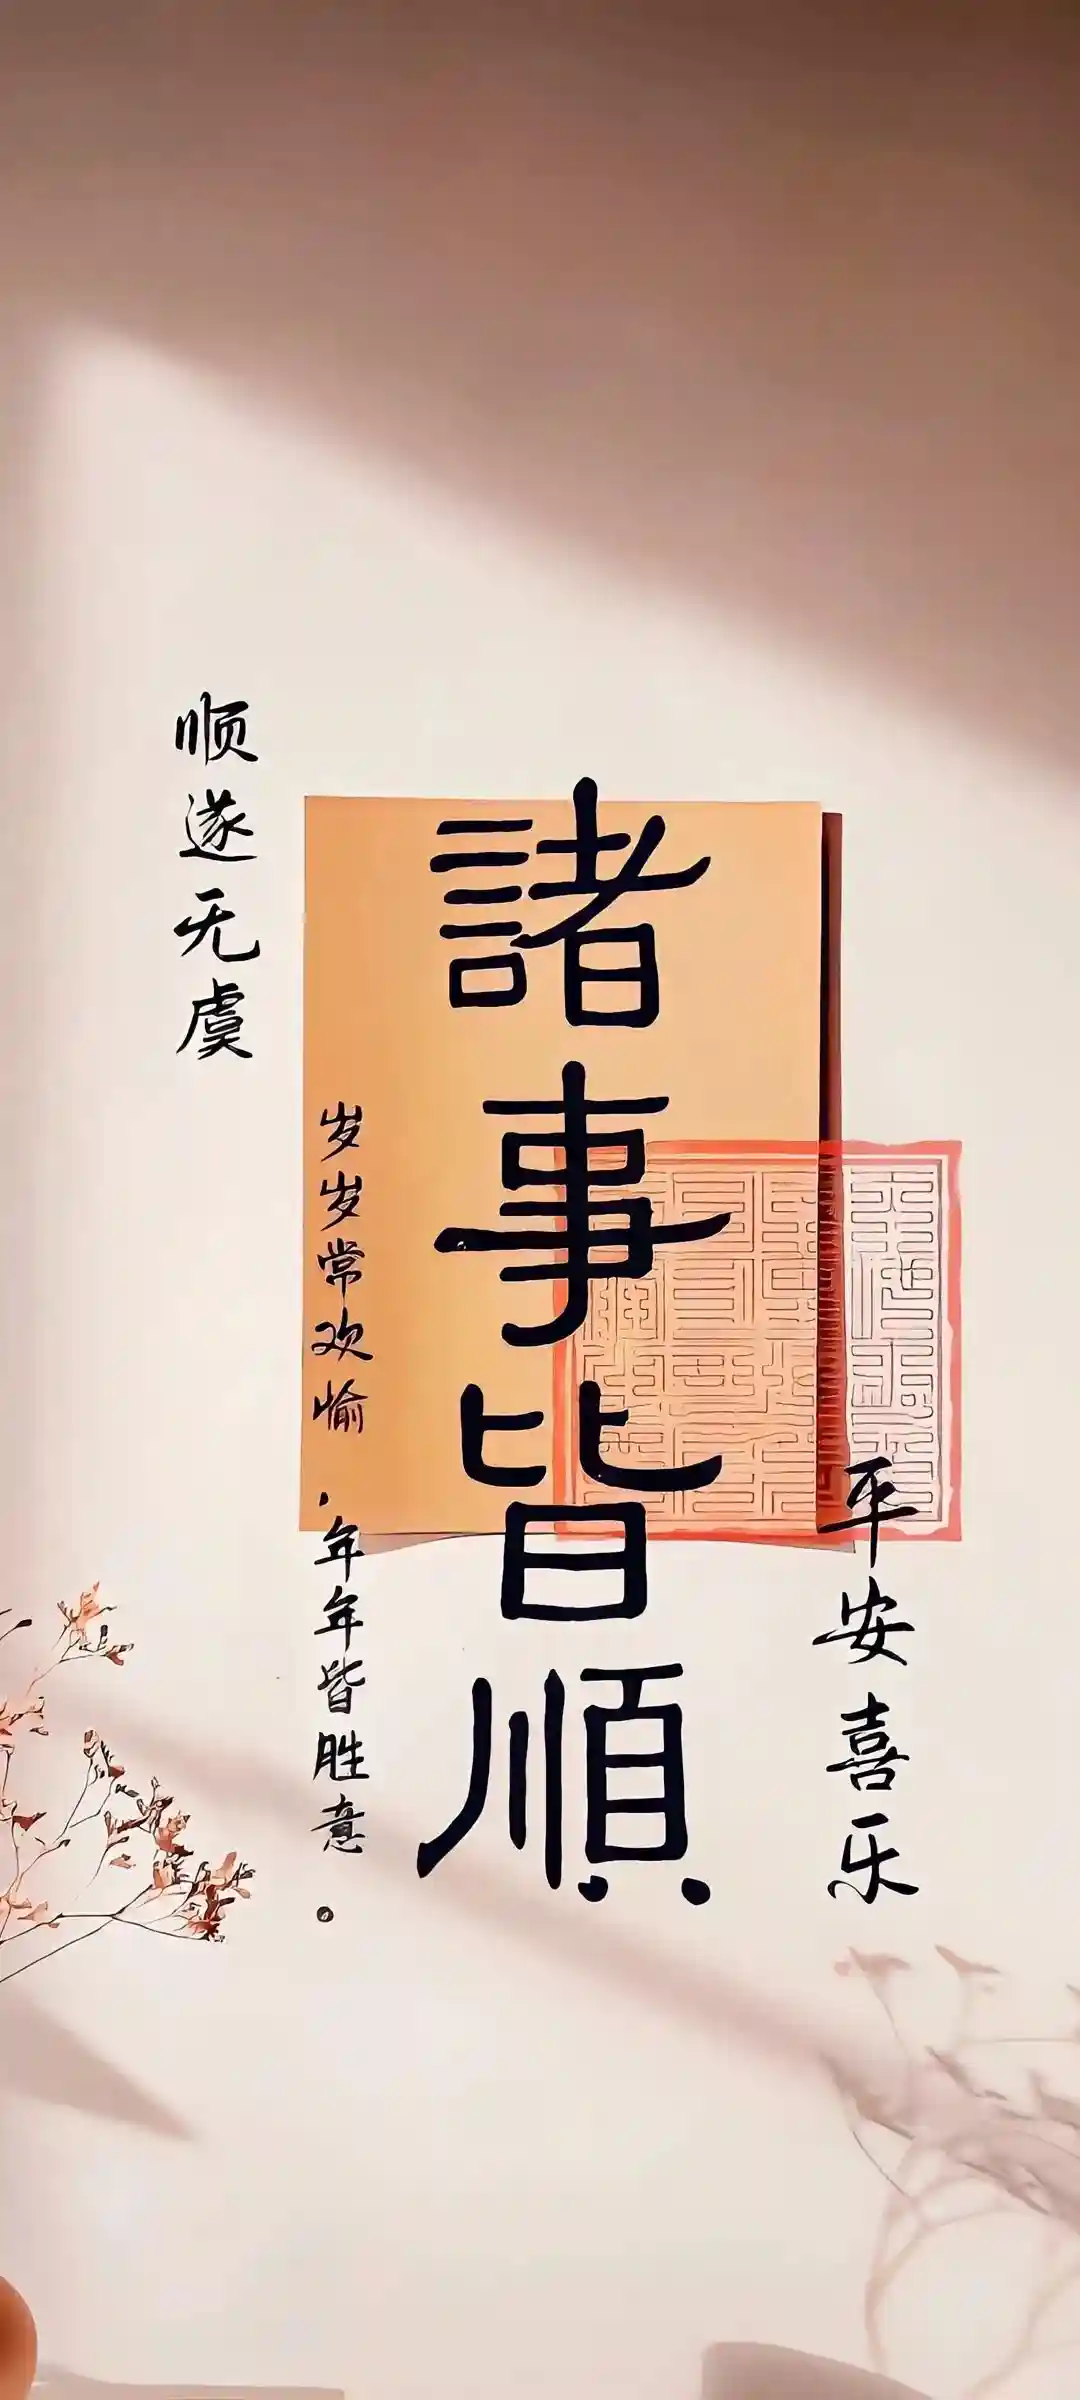 顺遂无虞
諸事皆順
岁岁常欢愉
，年年皆胜意。
平安喜乐